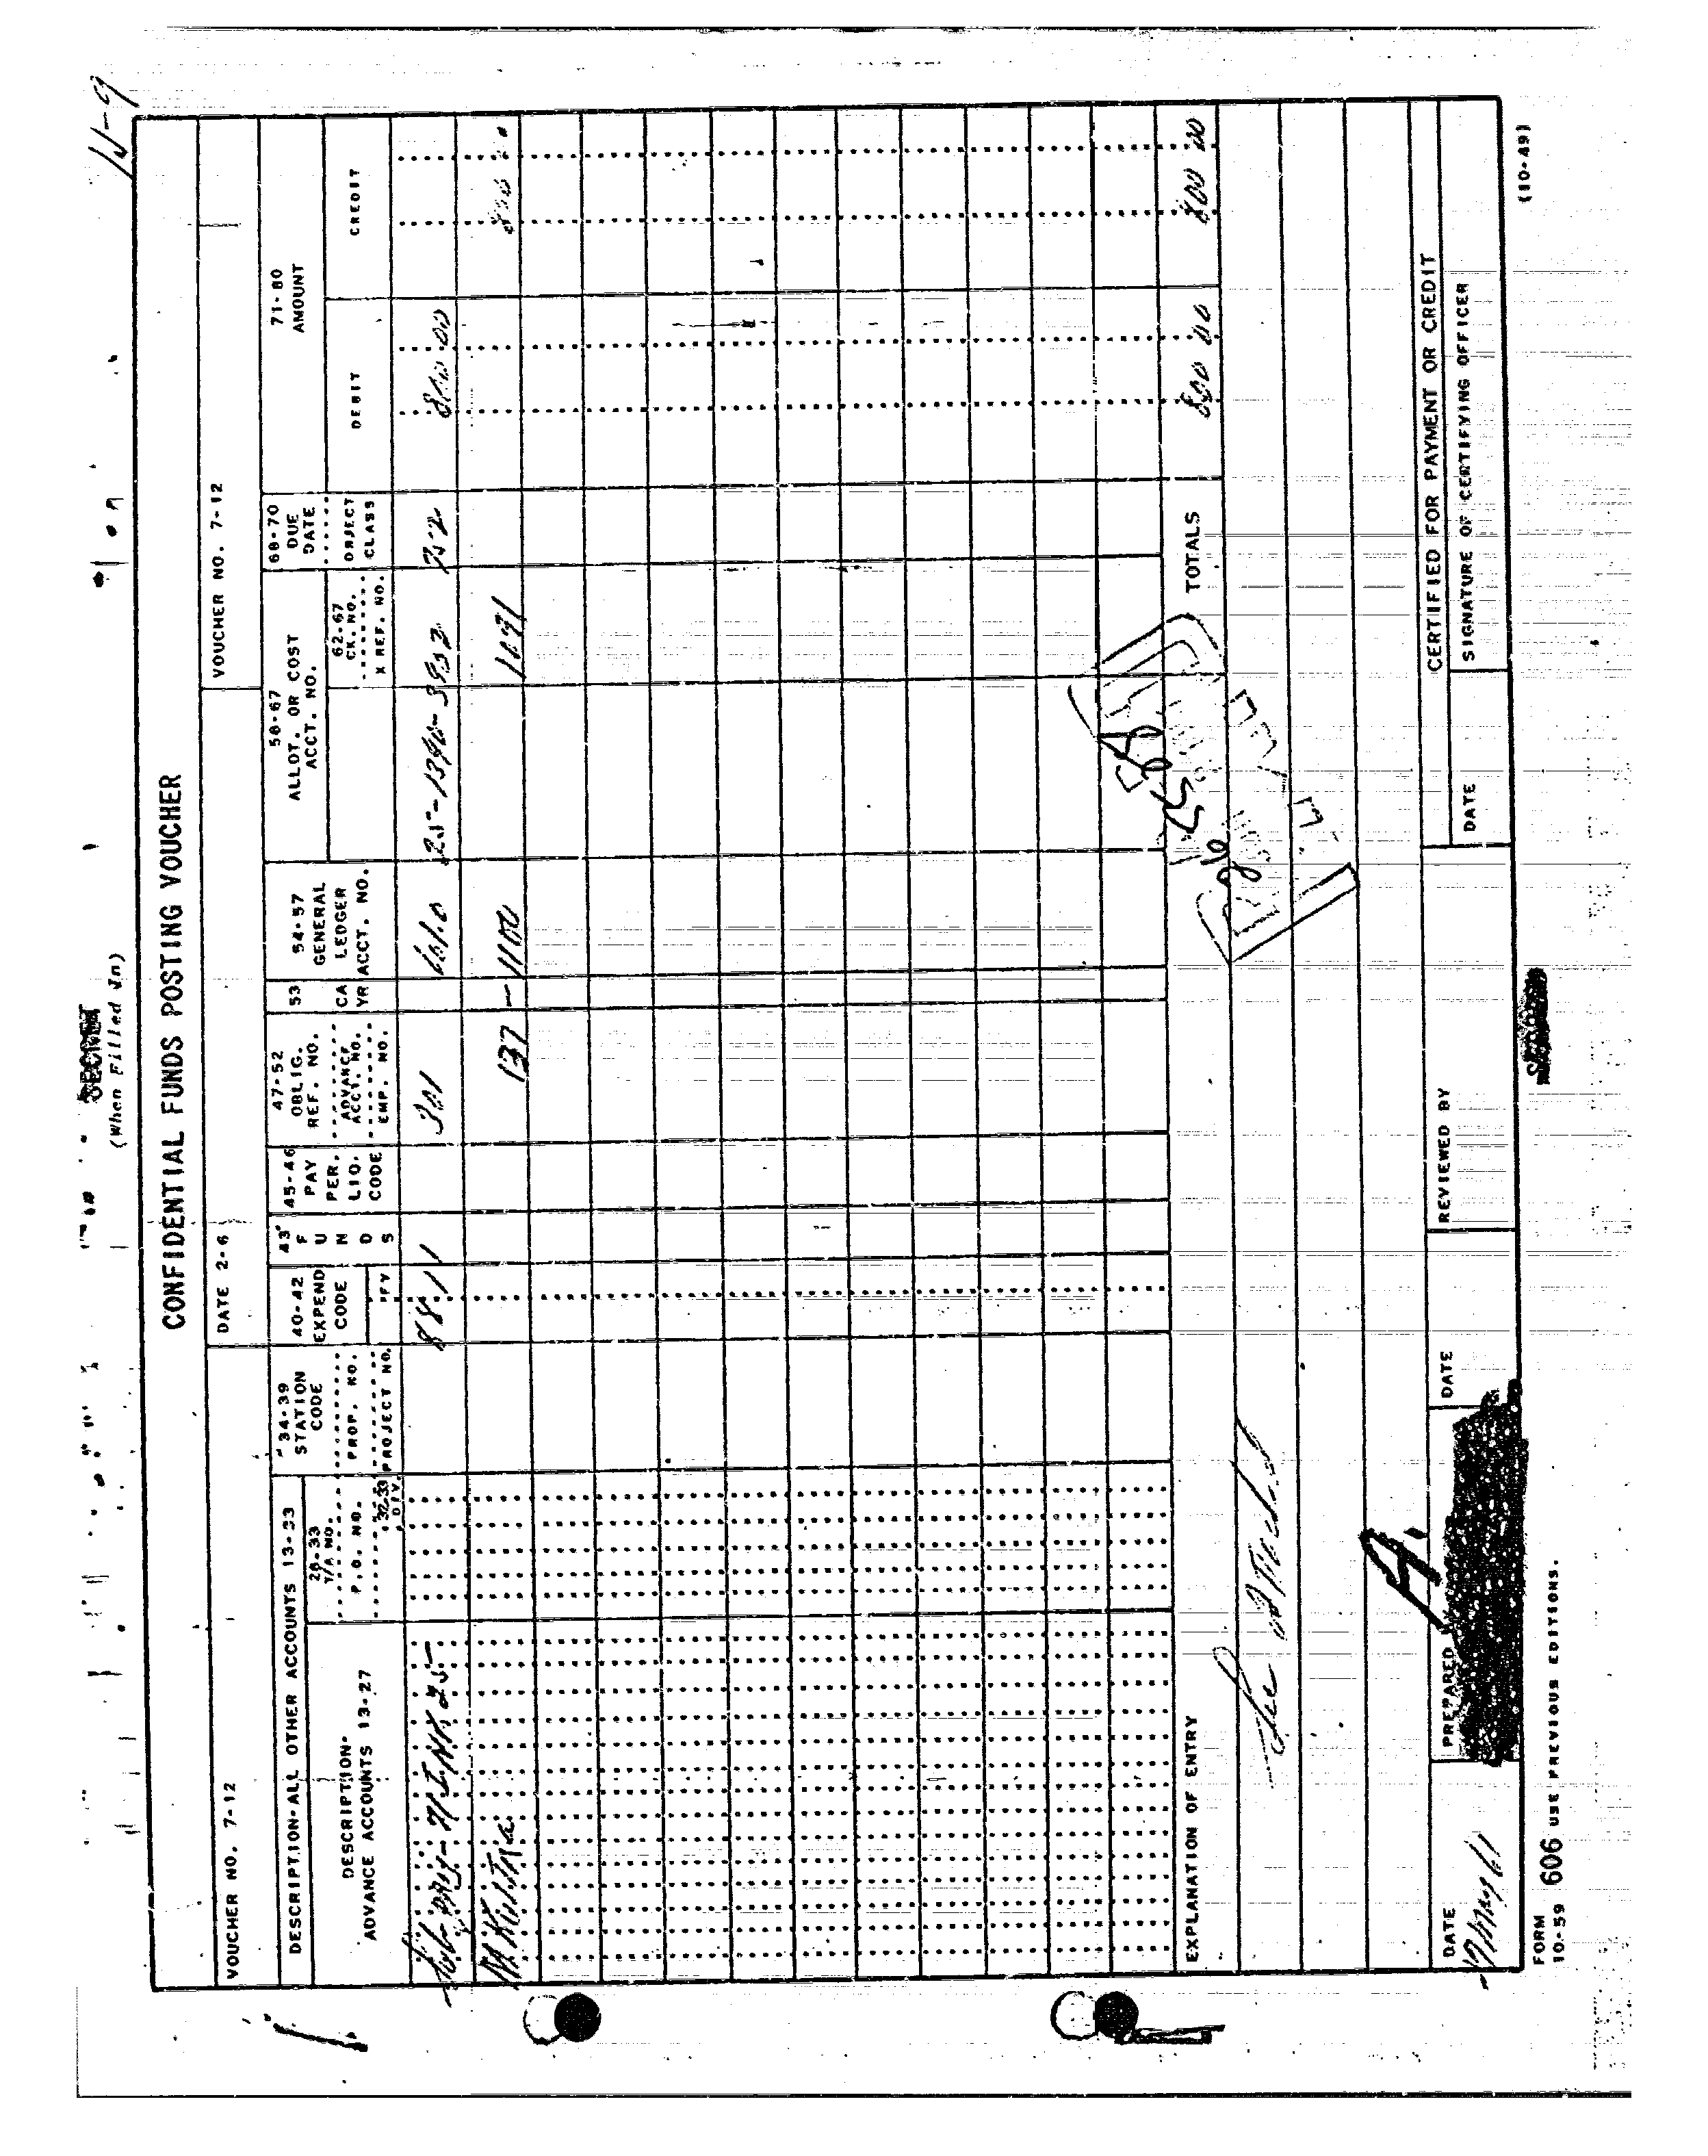 11-9
SECRET
(When Filled In)
CONFIDENTIAL FUNDS POSTING VOUCHER
VOUCHER NO. 7-12
DATE 2-6
VOUCHER NO. 7-12
DESCRIPTION-ALL OTHER ACCOUNTS 13-33
DESCRIPTION-
ADVANCE ACCOUNTS 13-27
28-33
T/A NO.
P.O. NO.
32-33
DIV.
34-39
STATION
CODE
PROP. NO.
PROJECT NO.
40-42
EXPEND
CODE
FY
43
FUNDS
45-46
PAY
PER.
LIQ.
CODE
47-52
OBLIG.
REF. NO.
ADVANCE
ACCT. NO.
EMP. NO.
53
CA
YR
54-57
GENERAL
LEDGER
ACCT. NO.
58-67
ALLOT. OR COST
ACCT. NO.
62-67
CK. NO.
X REF. NO.
68-70
DUE
DATE
OBJECT
CLASS
71-80
AMOUNT
DEBIT
CREDIT
88 1 1 301 601.0 25-1390-3902 800 00
137 - 1100 1091 800
EXPLANATION OF ENTRY
TOTALS
800 00
800 00
See
A.
CERTIFIED FOR PAYMENT OR CREDIT
DATE
PREPARED
DATE
REVIEWED BY
DATE
SIGNATURE OF CERTIFYING OFFICER
9 May 61
FORM
10-59 606 USE PREVIOUS EDITIONS.
SECRET
(10-49)